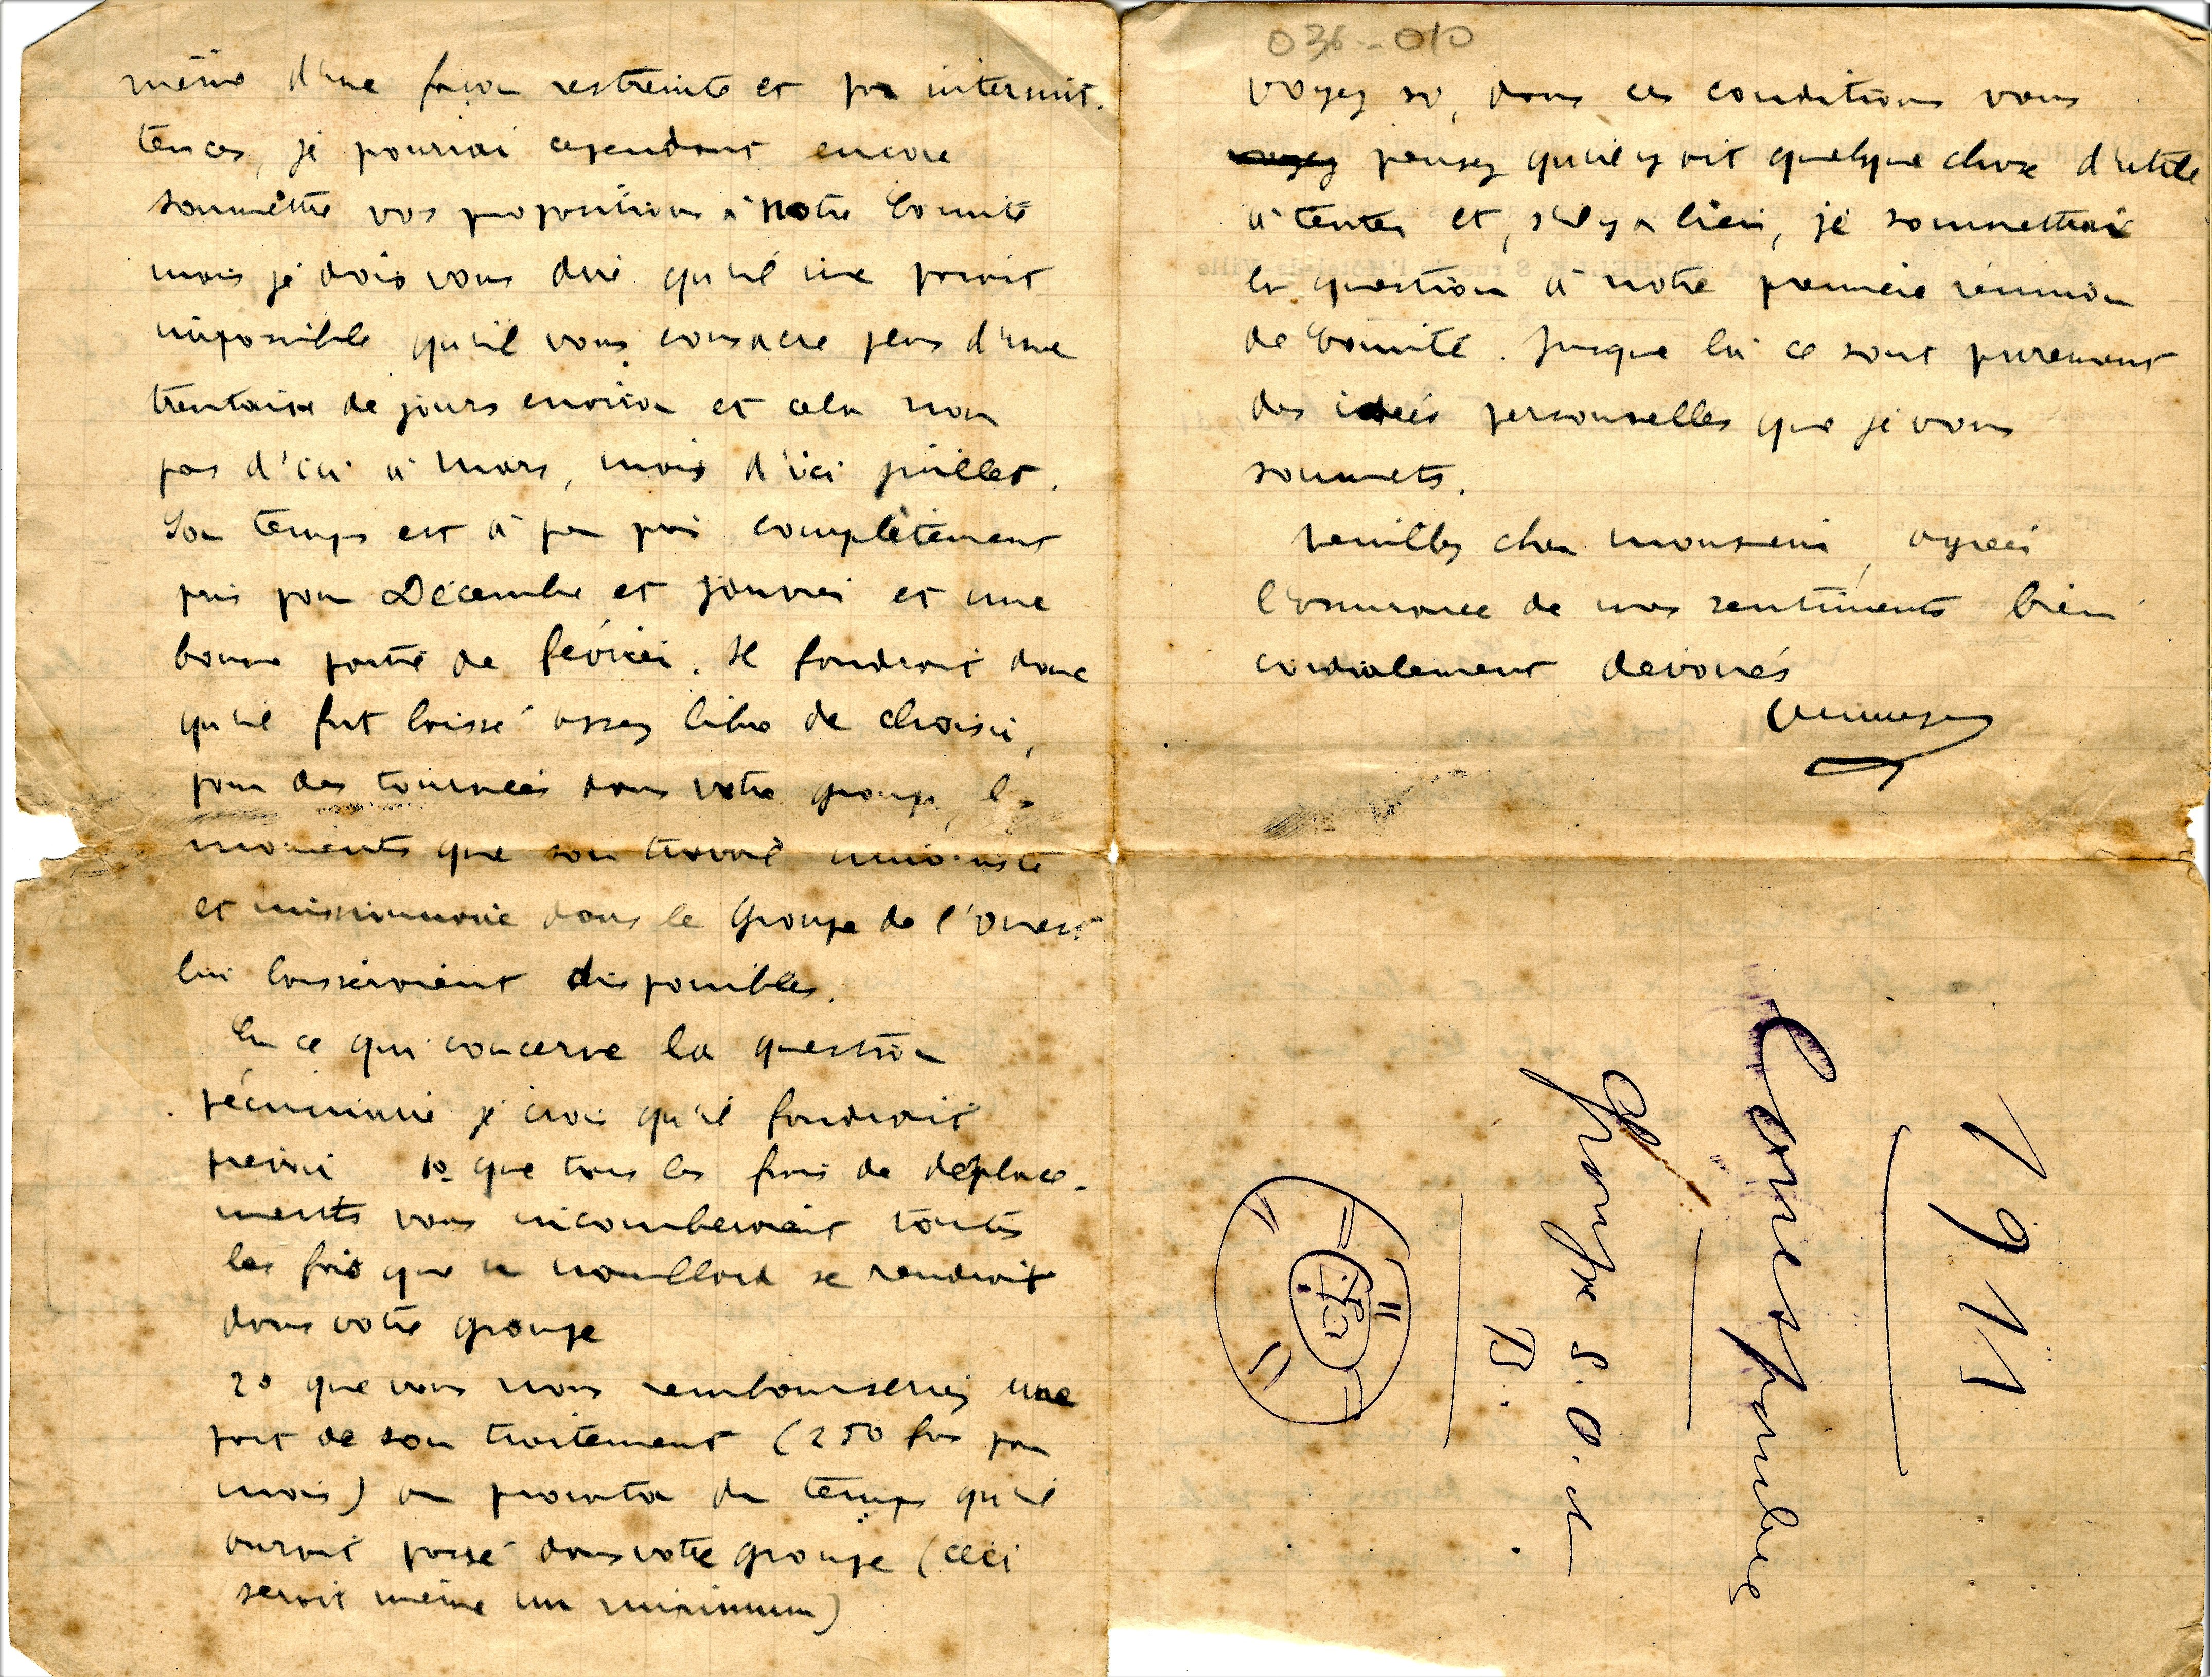 même d'une façon restreinte et par intermit-
tences, je pourrai cependant encore
soumettre vos propositions à notre Comité
mais je dois vous dire qu'il me parait
impossible qu'il vous consacre plus d'une
trentaine de jours environ et cela non
pas d'ici à Mars, mais d'ici juillet.
Son temps est à peu près complètement
pris pour Décembre et Janvier et une
bonne partie de février. Il faudrait donc
qu'il fut laissé assez libre de choisir,
pour des tournées dans votre groupe, les
moments que son travail unioniste
et missionnaire dans le Groupe de l'Ouest
lui laisseraient disponibles.
En ce qui concerne la question
pécuniaire je crois qu'il faudrait
prévoir 1º que tous les frais de déplace-
ments vous incomberaient toutes
les fois que se rendrait
dans votre groupe
2º que vous nous rembourseriez une
part de son traitement (250 frs par
mois) au prorata du temps qu'il
aurait passé dans votre groupe (ceci
serait même un minimum)
036-010
Voyez si, dans ces conditions vous
pensez qu'il y ait quelque chose d'utile
à tenter et, s'il y a lieu, je soumettrai
la question à notre première réunion
de Comité. Jusque là ce sont purement
des idées personnelles que je vous
soumets.
Veuillez cher monsieur, agréer
l'assurance de nos sentiments bien
cordialement dévoués
1911
Correspondance
Groupe S. O. et
B.